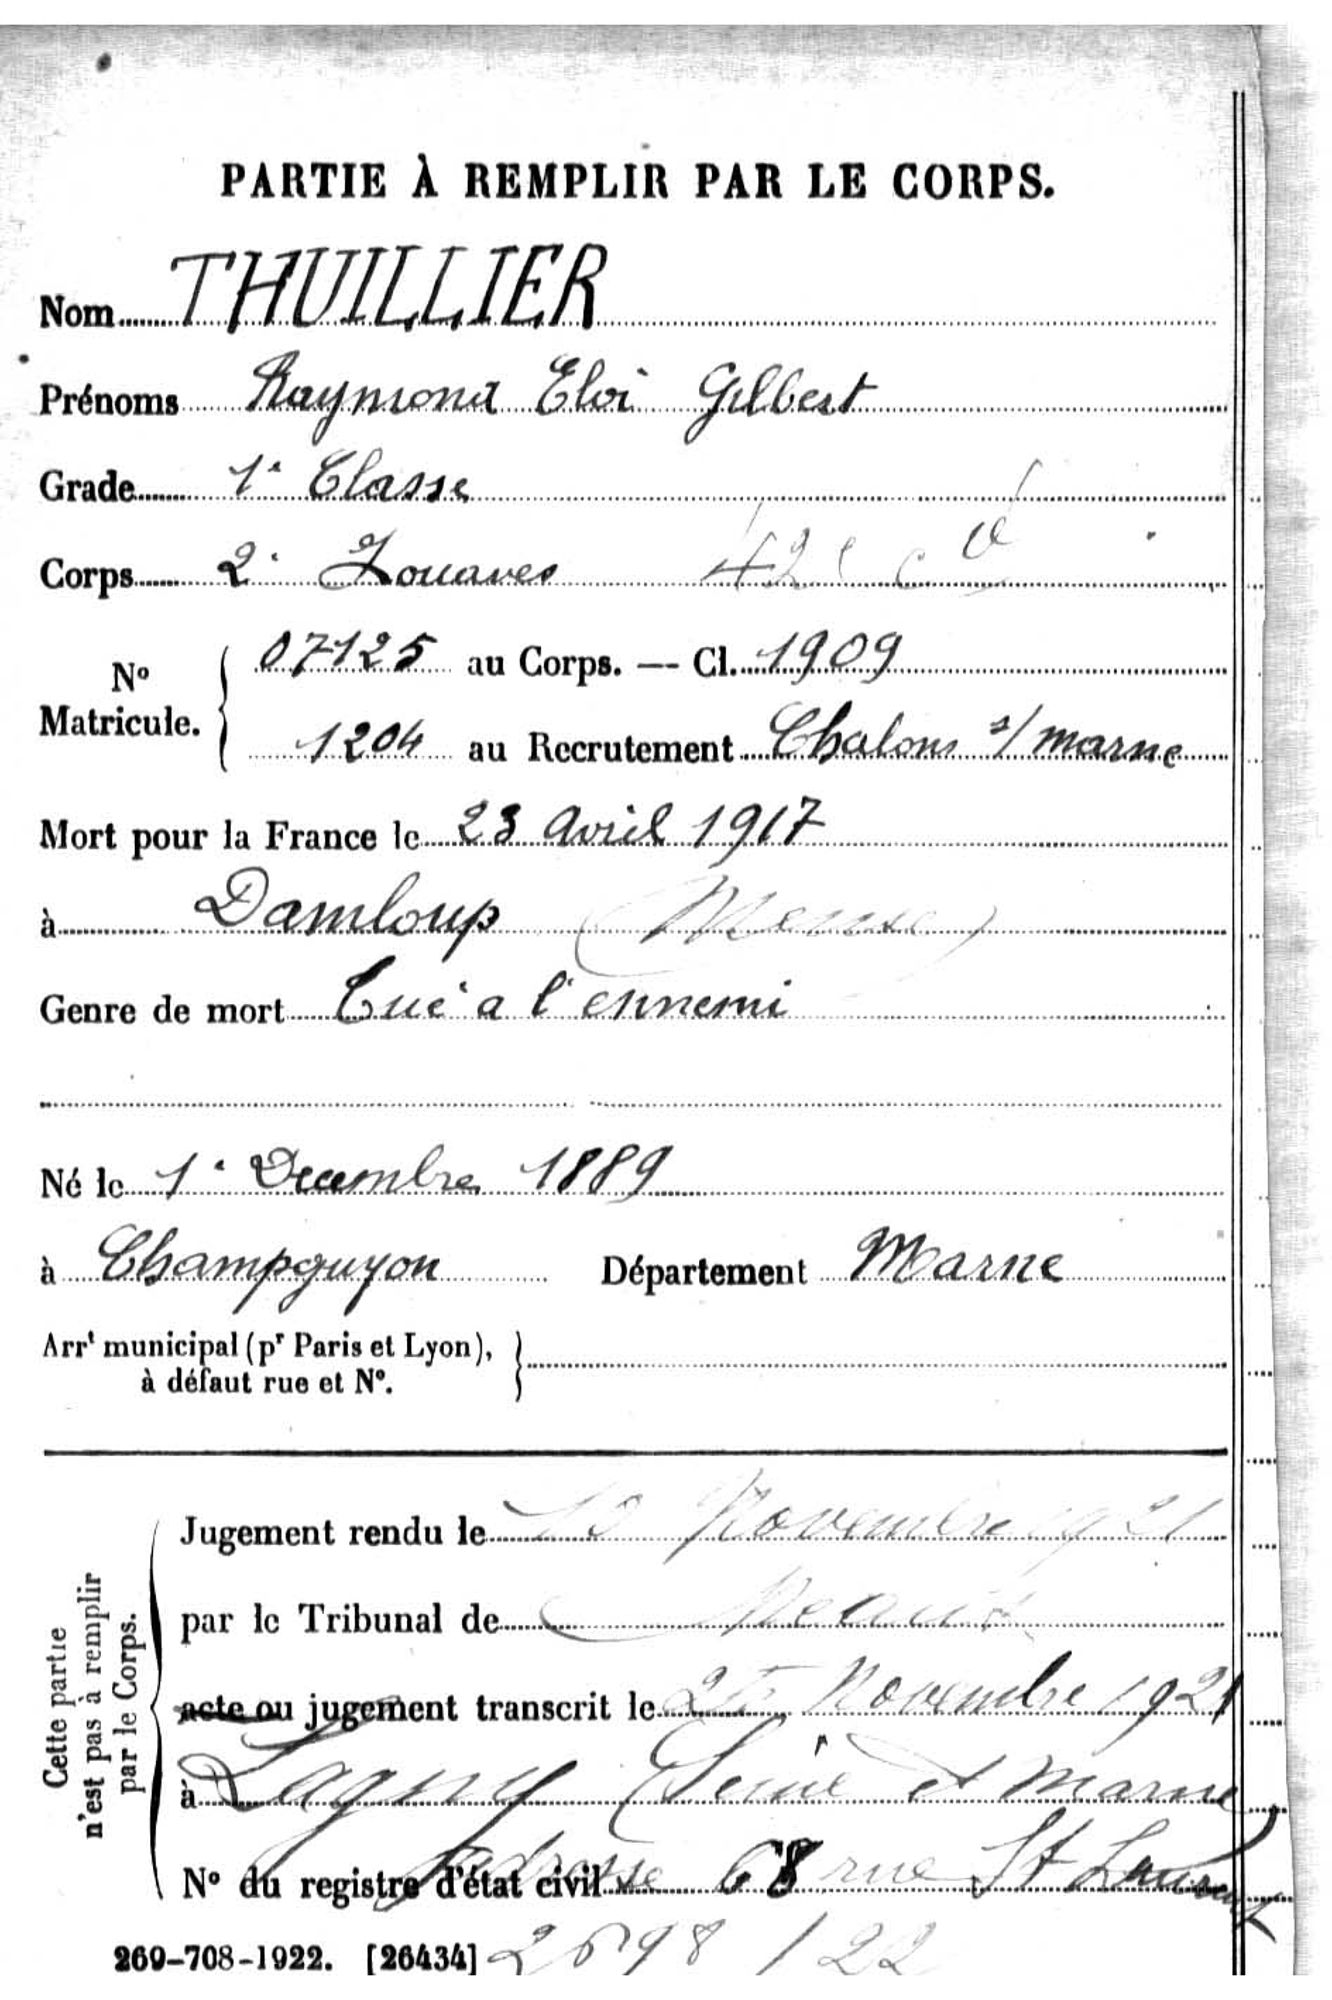 PARTIE À REMPLIR PAR LE CORPS.
Nom THUILLIER
Prénoms Raymond Eloi Gilbert
Grade 1e Classe
Corps 2e Zouaves 42e
N° Matricule.
07125 au Corps. — Cl. 1909
1204 au Recrutement Chalons s/ marne
Mort pour la France le 23 Avril 1917
à Damloup (Meuse)
Genre de mort Tué a l'ennemi
Né le 1e Decembre 1889
à Champguyon Département Marne
Arrt municipal (pr Paris et Lyon),
à défaut rue et N°.
Cette partie
n'est pas à remplir
par le Corps.
Jugement rendu le Novembre 1921
par le Tribunal de Meaux
acte ou jugement transcrit le Novembre 1921
à Lagny (Seine et Marne)
N° du registre d'état civil adresse 68 rue St Laurent
269-708-1922. [26434] 2698 / 22